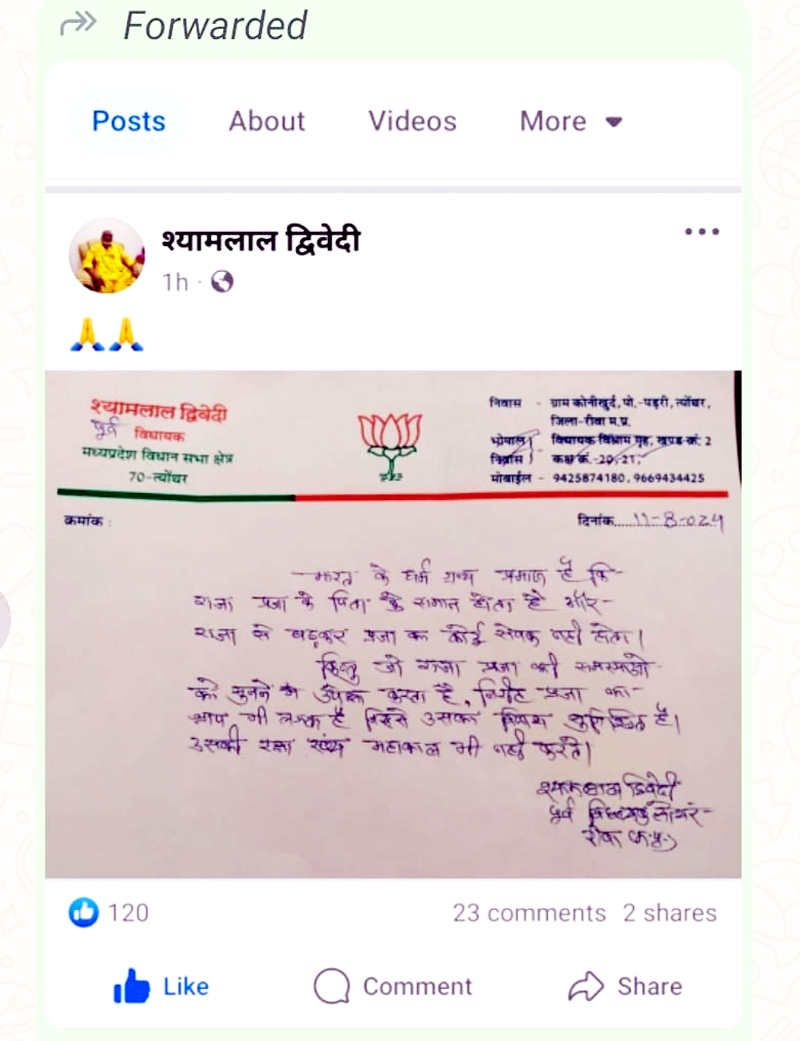 Forwarded
Posts About Videos More
श्यामलाल द्विवेदी
1h
श्यामलाल द्विवेदी
पूर्व विधायक
मध्यप्रदेश विधान सभा क्षेत्र
70-त्योंथर
निवास - ग्राम कोनीखुर्द, पो.-पड़री, त्योंथर,
जिला-रीवा म.प्र.
भोपाल - विधायक विश्राम गृह, खण्ड क्रं: 2
निवास कक्ष क्रं.-20, 21,
मोबाईल - 9425874180, 9669434425
कमांक :
दिनांक 11-8-024
भारत के धर्म ग्रन्थ प्रमाण है कि
राजा प्रजा के पिता के समान होता है और
राजा से बढ़कर प्रजा का कोई सेवक नहीं होता।
किन्तु जो राजा प्रजा की समस्याओ
को सुनने में करता है, प्रजा का
श्राप भी लगता है जिससे उसका सुनिश्चित है।
उसकी रक्षा स्वंय महाकाल भी नहीं करते।
श्यामलाल द्विवेदी
पूर्व
रीवा
120
23 comments 2 shares
Like Comment Share